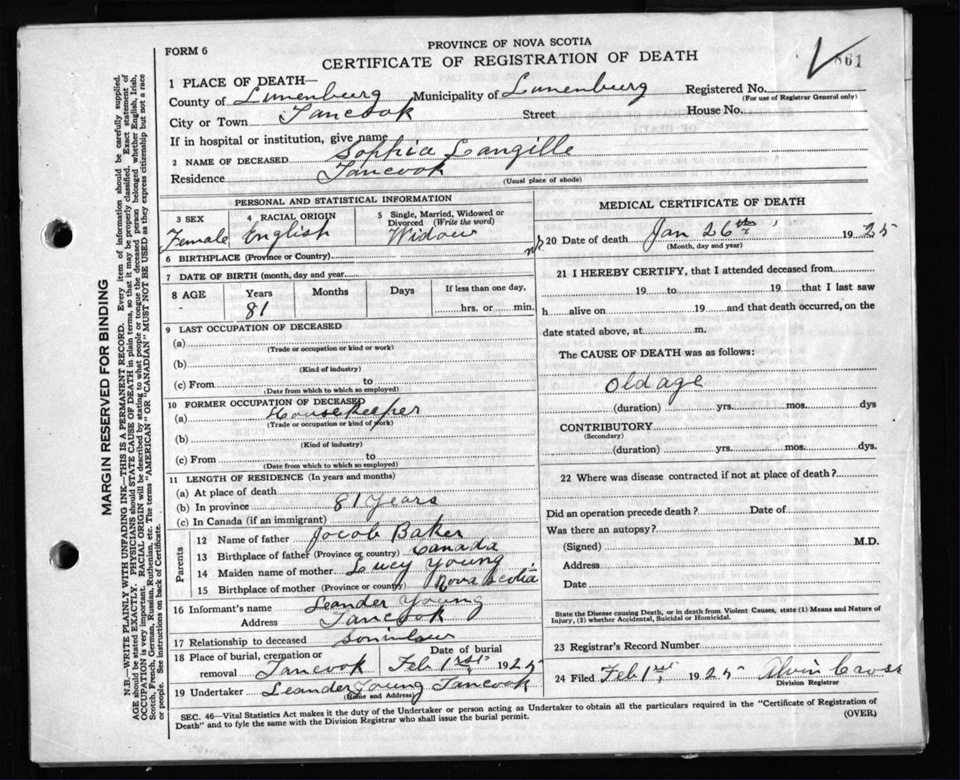 PROVINCE OF NOVA SCOTIA
FORM 6
CERTIFICATE OF REGISTRATION OF DEATH
861
1 PLACE OF DEATH—
County of Lunenburg Municipality of Lunenburg Registered No.
(For use of Registrar General only)
City or Town Tancook Street House No.
If in hospital or institution, give name
2 NAME OF DECEASED Sophia Langille
Residence Tancook
(Usual place of abode)
PERSONAL AND STATISTICAL INFORMATION
3 SEX 4 RACIAL ORIGIN 5 Single, Married, Widowed or Divorced (Write the word)
Female English Widow
6 BIRTHPLACE (Province or Country)
7 DATE OF BIRTH (month, day and year)
8 AGE Years Months Days If less than one day,
81 hrs. or min.
9 LAST OCCUPATION OF DECEASED
(a)
(Trade or occupation or kind or work)
(b)
(Kind of industry)
(c) From to
(Date from which to which so employed)
10 FORMER OCCUPATION OF DECEASED
(a) Housekeeper
(Trade or occupation or kind of work)
(b)
(Kind of industry)
(c) From to
(Date from which to which so employed)
11 LENGTH OF RESIDENCE (In years and months)
(a) At place of death
(b) In province 81 years
(c) In Canada (if an immigrant)
Parents
12 Name of father Jocob Baker
13 Birthplace of father (Province or country) Canada
14 Maiden name of mother Lucy Young
15 Birthplace of mother (Province or country) Nova Scotia
16 Informant's name Leander Young
Address Tancook
17 Relationship to deceased Soninlaw
18 Place of burial, cremation or removal Date of burial
Tancook Feb 1rst 1925
19 Undertaker Leander Young Tancook
(Name and Address)
MEDICAL CERTIFICATE OF DEATH
20 Date of death Jan 26th 1925
(Month, day and year)
21 I HEREBY CERTIFY, that I attended deceased from
19 to 19 that I last saw
h alive on 19 and that death occurred, on the
date stated above, at m.
The CAUSE OF DEATH was as follows:
Old age
(duration) yrs. mos. dys
CONTRIBUTORY
(Secondary)
(duration) yrs. mos. dys.
22 Where was disease contracted if not at place of death?
Did an operation precede death? Date of
Was there an autopsy?
(Signed) M.D.
Address
Date
State the Disease causing Death, or in death from Violent Causes, state (1) Means and Nature of
Injury, (2) whether Accidental, Suicidal or Homicidal.
23 Registrar's Record Number
24 Filed Feb 1rst 1925 Alvin Cross
Division Registrar
SEC. 46—Vital Statistics Act makes it the duty of the Undertaker or person acting as Undertaker to obtain all the particulars required in the "Certificate of Registration of
Death" and to fyle the same with the Division Registrar who shall issue the burial permit.
(OVER)
MARGIN RESERVED FOR BINDING
N.B.—WRITE PLAINLY WITH UNFADING INK—THIS IS A PERMANENT RECORD. Every item of information should be carefully supplied.
AGE should be stated EXACTLY. PHYSICIANS should STATE CAUSE OF DEATH in plain terms, so that it may be properly classified. Exact statement of
OCCUPATION is very important. RACIAL ORIGIN will be described by stating to what people or tongue the deceased person belonged whether English, Irish,
Scotch, French, German, Russian, Ruthenian, etc. The terms "AMERICAN" OR "CANADIAN" MUST NOT BE USED as they express citizenship but not a race
or people. See instructions on back of Certificate.